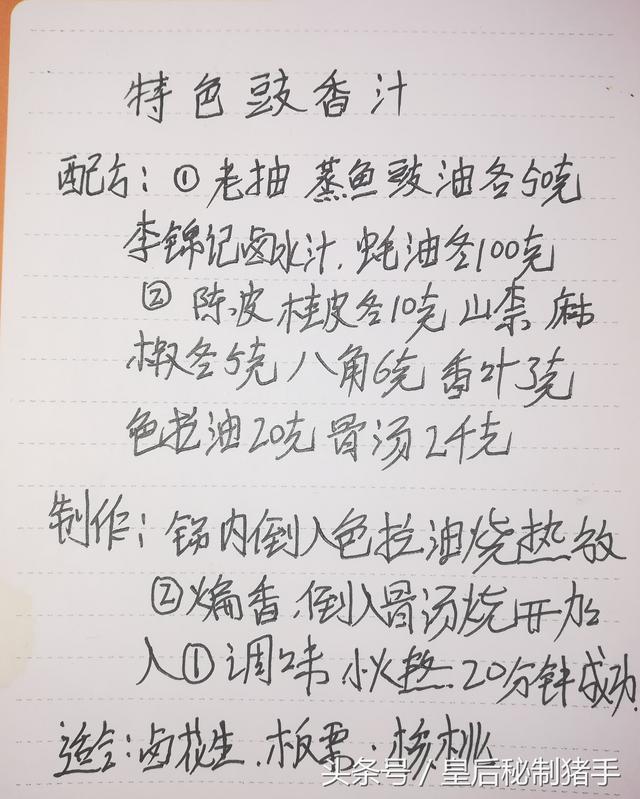 特色豉香汁
配方:①老抽 蒸鱼豉油各50克
李锦记卤水汁、蚝油各100克
②陈皮桂皮各10克 山柰 麻
椒各5克 八角6克 香叶3克
色拉油20克 骨汤2千克
制作:锅内倒入色拉油烧热放
②煸香、倒入骨汤烧开加
入①调味 小火熬20分钟成功.
适合:卤花生、板栗、核桃
头条号/皇后秘制猪手